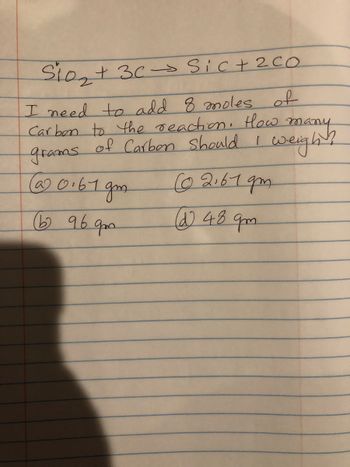 SiO₂ + 3C → SiC + 2CO
I need to add 8 moles of
Carbon to the reaction. How many
grams of Carbon should I weigh?
(a) 0.67 gm (c) 2.67 gm
(b) 96 gm (d) 48 gm